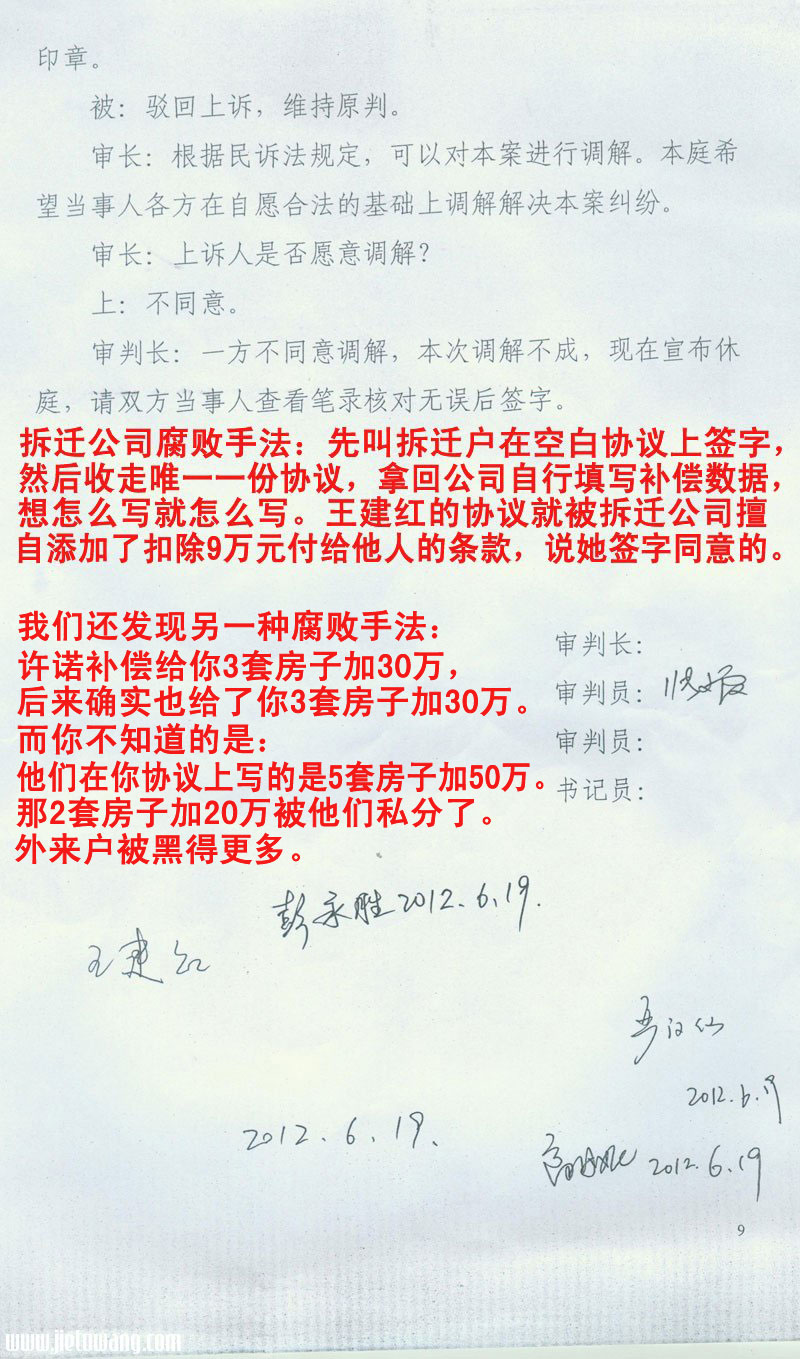 印章。
被：驳回上诉，维持原判。
审长：根据民诉法规定，可以对本案进行调解。本庭希
望当事人各方在自愿合法的基础上调解解决本案纠纷。
审长：上诉人是否愿意调解？
上：不同意。
审判长：一方不同意调解，本次调解不成，现在宣布休
庭，请双方当事人查看笔录核对无误后签字。
拆迁公司腐败手法：先叫拆迁户在空白协议上签字，
然后收走唯一一份协议，拿回公司自行填写补偿数据，
想怎么写就怎么写。王建红的协议就被拆迁公司擅
自添加了扣除9万元付给他人的条款，说她签字同意的。
我们还发现另一种腐败手法：
许诺补偿给你3套房子加30万，
后来确实也给了你3套房子加30万。
而你不知道的是：
他们在你协议上写的是5套房子加50万。
那2套房子加20万被他们私分了。
外来户被黑得更多。
审判长：
审判员：
审判员：
书记员：
彭永胜2012.6.19.
王建红
2012.6.19
2012.6.19.
2012.6.19
9
www.jietowang.com